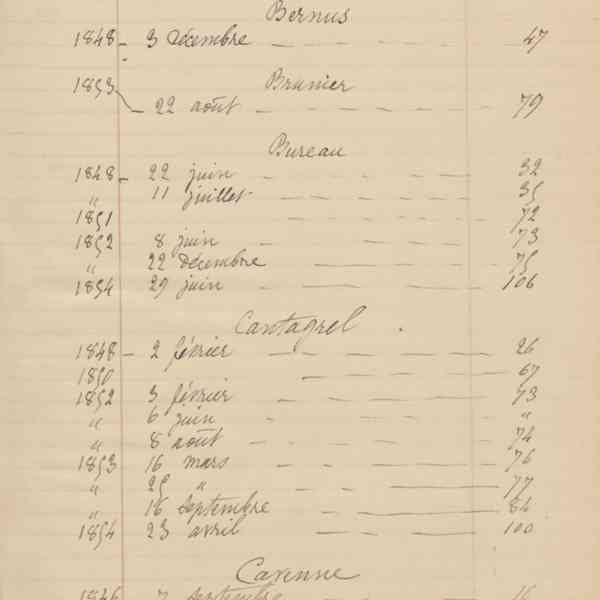 Bernus
1848 - 3 décembre 47
1853
Brunier
22 août 79
Bureau
1848 - 22 juin 32
" 11 juillet 35
1851 72
1852 8 juin 73
" 22 décembre 75
1854 29 juin 106
Cantagrel
1848 - 2 février 26
1850 67
1852 3 février 73
" 6 juin "
" 8 août 74
1853 16 mars 76
" 25 " 77
" 16 septembre 84
1854 23 avril 100
Cavenne
1846 7 septembre 16